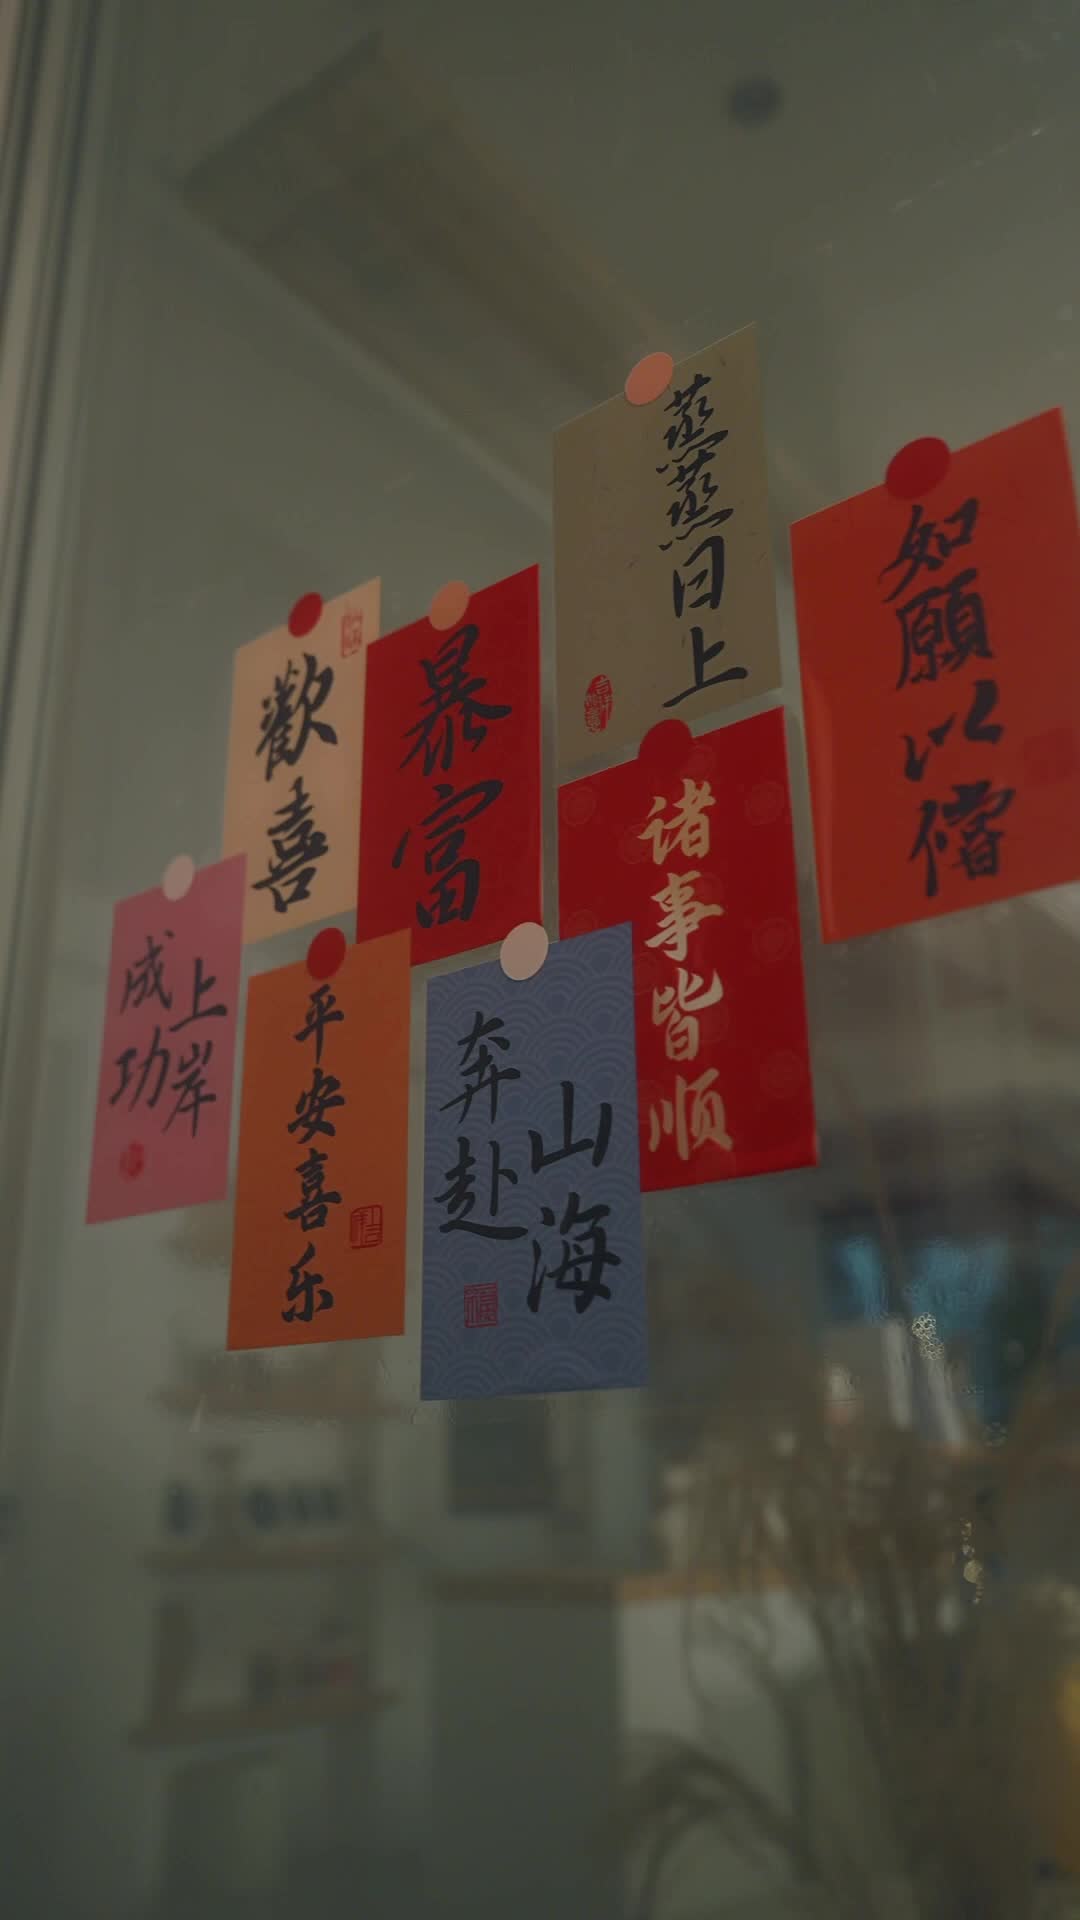 蒸蒸日上
如願以償
歡喜
暴富
诸事皆顺
成功
上岸
平安喜乐
奔赴
山海